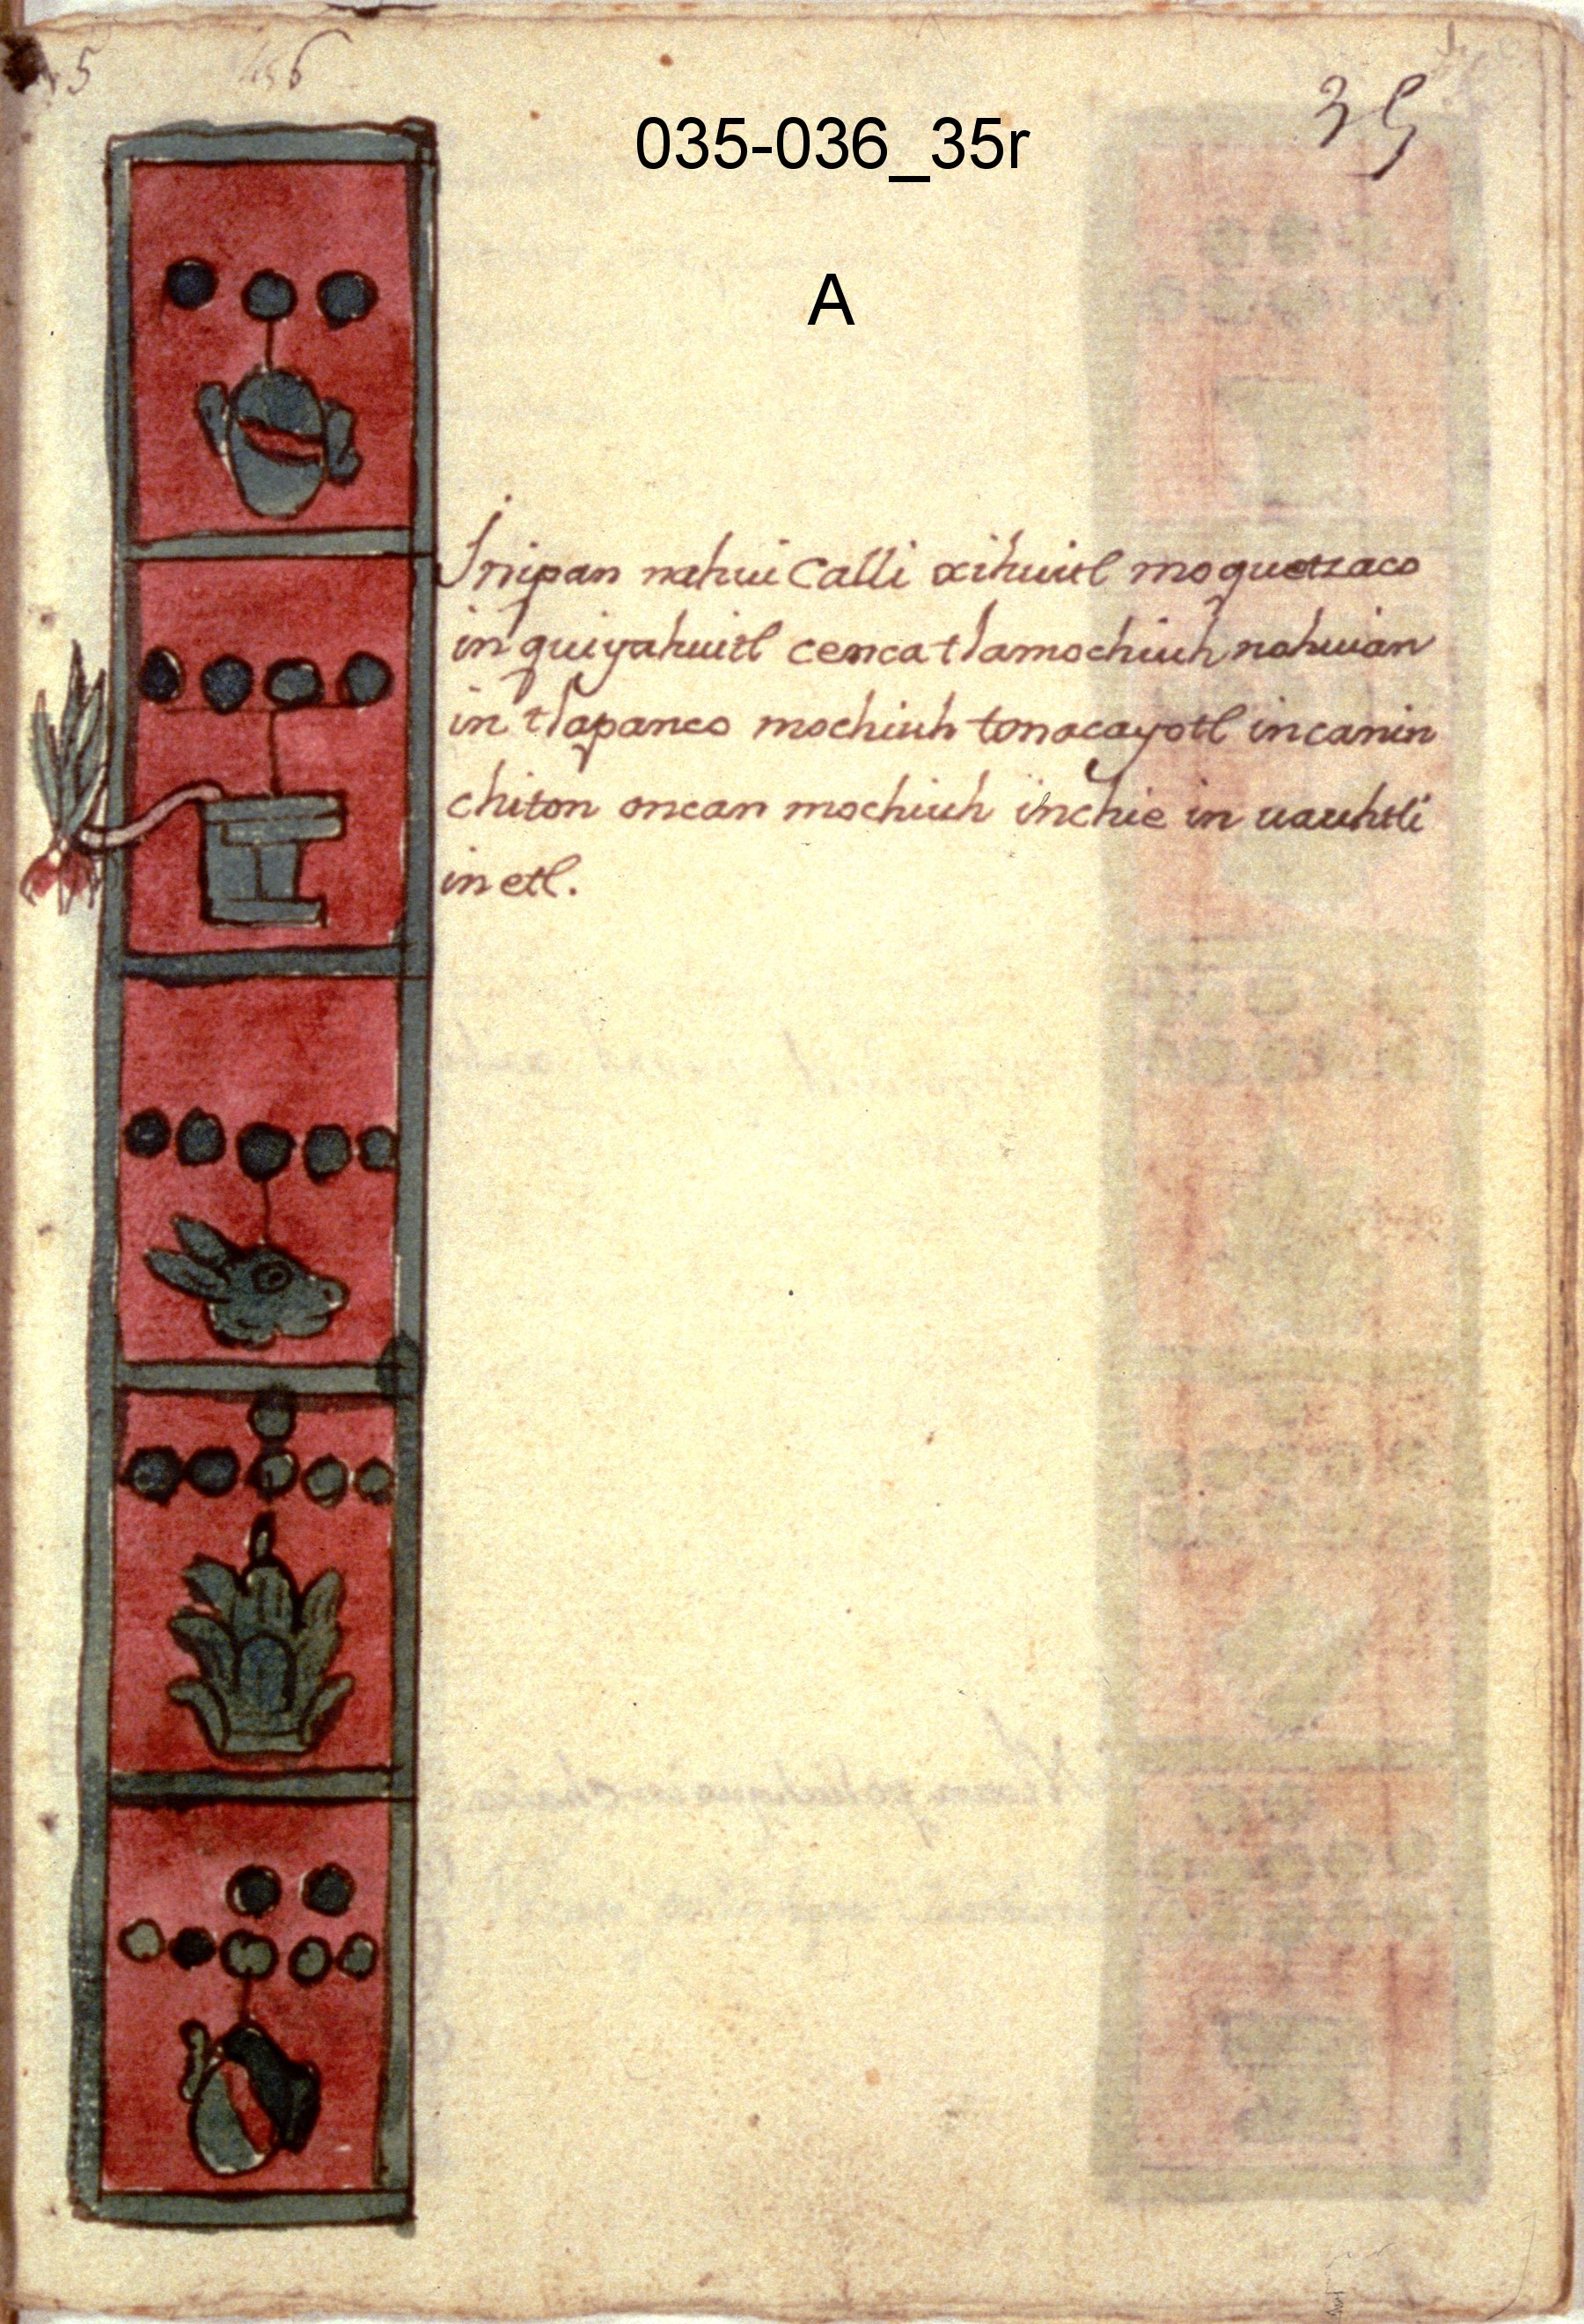 5 456 35
035-036_35r
A
Inipan nahui Calli xihuitl moquetzaco
in quiyahuitl cenca tlamochiuh nohuian
in tlapanco mochiuh tonacayotl incanin
chiton oncan mochiuh inchie in uauhtli
in etl.